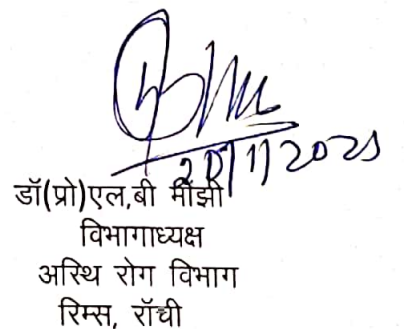 20/1/2025
डॉ(प्रो)एल,बी माँझी
विभागाध्यक्ष
अस्थि रोग विभाग
रिम्स, राँची